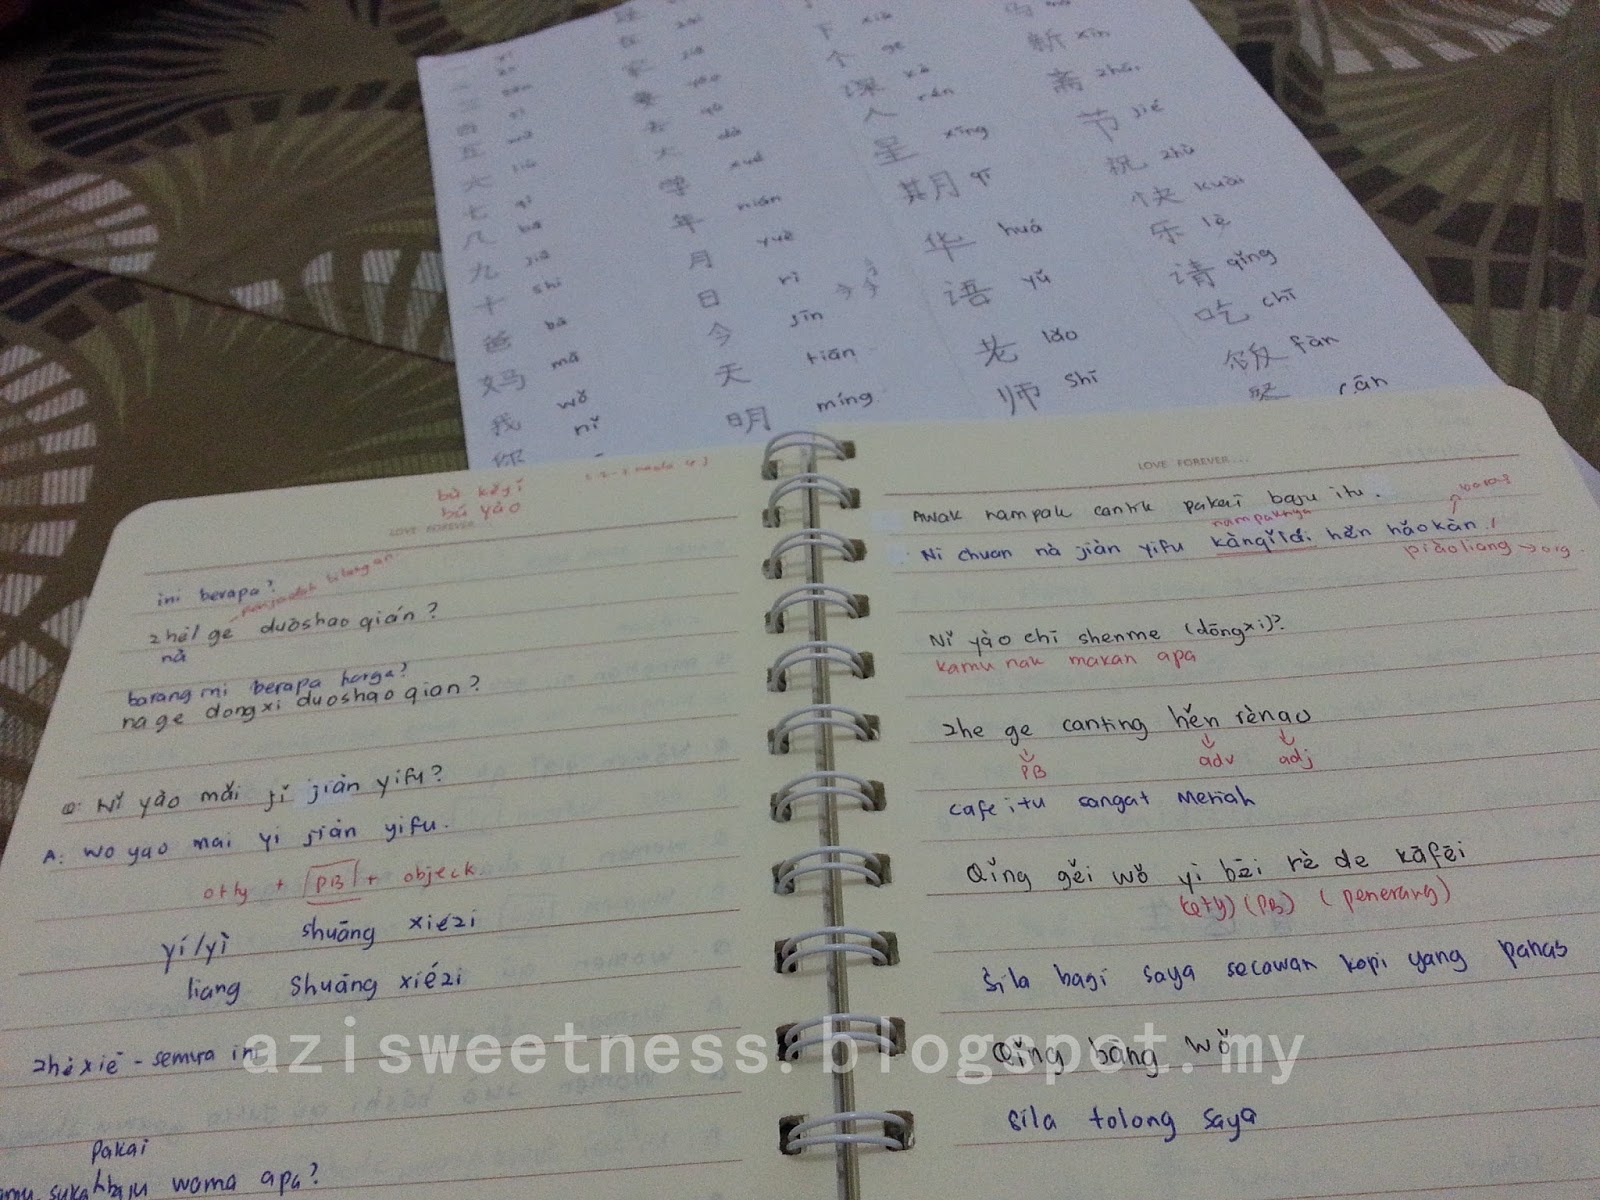 二
三
四
五
六 liù
七 qī
八 bā
九 jiǔ
十 shí
爸 bà
妈 mā
我 wǒ
你 nǐ
家
爱
去 qù
大 dà
学 xué
年 nián
月 yuè
日 rì
今 jīn
天 tiān
明 míng
下 xià
个 ge
课 kè
人 rén
星 xīng
期 qī
华 huá
语 yǔ
老 lǎo
师 shī
新 xīn
斋 zhāi
节 jié
祝 zhù
快 kuài
乐 lè
请 qǐng
吃 chī
饭 fàn
bù kěyǐ
bú yào
LOVE FOREVER...
ini berapa?
penjodoh bilangan
zhè/ ge duōshao qián?
nà
barang ini berapa harga?
na ge dongxi duoshao qian?
Q: Nǐ yào mǎi jǐ jiàn yīfu?
A: Wo yao mai yi jiàn yifu.
+ PB + objeck
yí/yì shuāng xiézi
liang shuāng xiézi
zhè xiē - semua ini
pakai
suka baju warna apa?
LOVE FOREVER...
Awak nampak cantik pakai baju itu.
nampaknya
Ni chuan nà jiàn yifu kànqǐlái hěn hǎokàn.
piàoliang → org.
Nǐ yào chī shenme (dōngxi)?
kamu nak makan apa
zhe ge canting hěn rènao
PB adv adj
cafe itu sangat meriah
Qǐng gěi wǒ yì bēi rè de kāfēi
(PB) (penerang)
Sila bagi saya secawan kopi yang panas
Qǐng bāng wǒ
sila tolong saya
azisweetness.blogspot.my